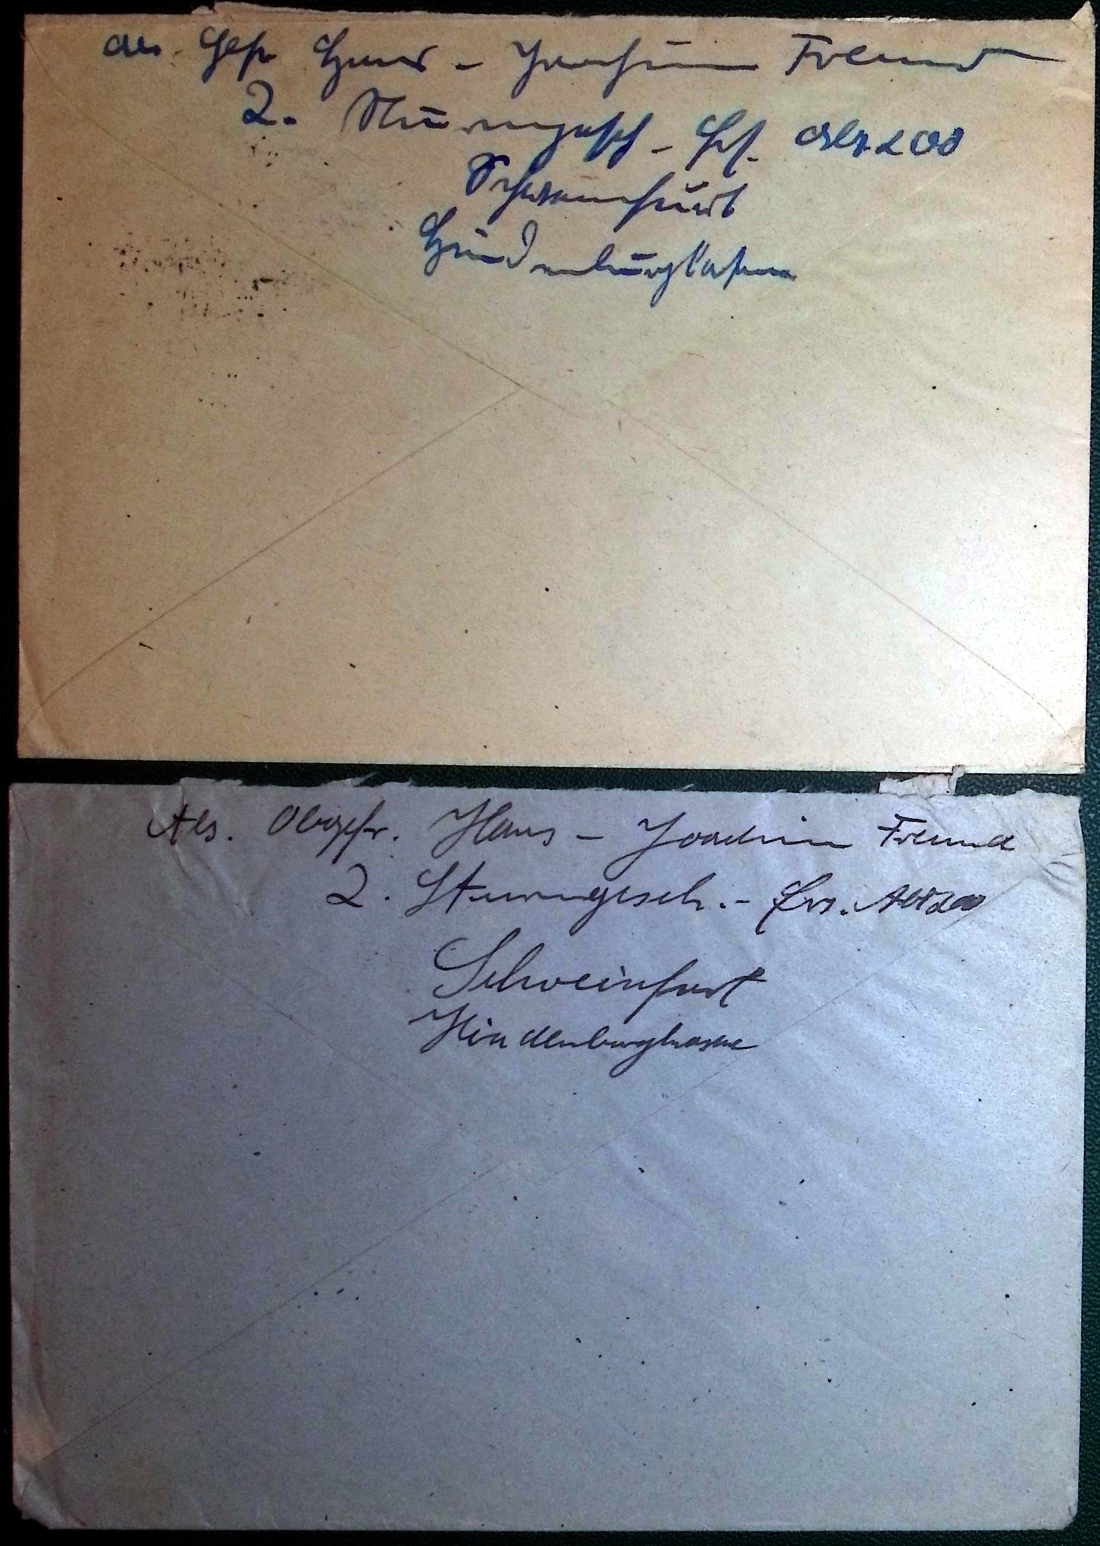 Abs. Gefr. Hans - Joachim Freund
2. Sturmgesch - Ers. Abt 200
Schweinfurt
Hindenburgkaserne
Abs. Obgefr. Hans - Joachim Freund
2. Sturmgesch. - Ers. Abt 200
Schweinfurt
Hindenburgkaserne